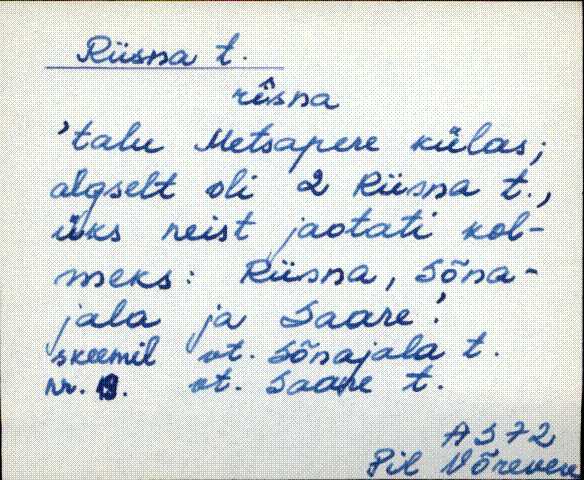 Riisna t.
rîsna
'talu Metsapere külas;
algselt oli 2 Riisna t.,
üks neist jaotati kol-
meks: Riisna, Sõna-
jala ja Saare.'
skeemil vt. Sõnajala t.
nr. 19. vt. Saare t.
AS72
Pil Võreven